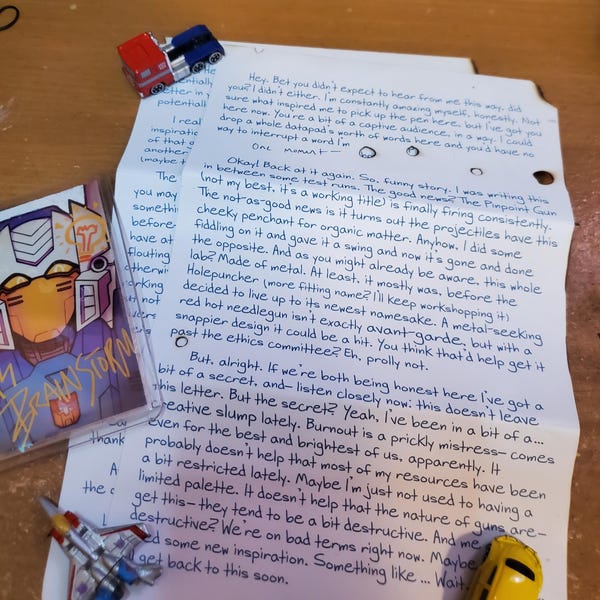 Hey. Bet you didn't expect to hear from me this way, did
you? I didn't either. I'm constantly amazing myself, honestly. Not
sure what inspired me to pick up the pen here, but I've got you
here now. You're a bit of a captive audience, in a way. I could
drop a whole datapad's worth of words here and you'd have no
way to interrupt a word I'm
one moment —
Okay! Back at it again. So, funny story. I was writing this
in between some test runs. The good news? The Pinpoint Gun
(not my best, it's a working title) is finally firing consistently.
The not-as-good news is it turns out the projectiles have this
cheeky penchant for organic matter. Anyhow. I did some
fiddling on it and gave it a swing and now it's gone and done
the opposite. And as you might already be aware, this whole
lab? Made of metal. At least, it mostly was, before the
Holepuncher (more fitting name? I'll keep workshopping it)
decided to live up to its newest namesake. A metal-seeking
red hot needlegun isn't exactly avant-garde, but with a
snappier design it could be a hit. You think that'd help get it
past the ethics committee? Eh, prolly not.
But, alright. If we're both being honest here I've got a
bit of a secret, and- listen closely now: this doesn't leave
this letter. But the secret? Yeah. I've been in a bit of a...
creative slump lately. Burnout is a prickly mistress- comes
even for the best and brightest of us, apparently. It
probably doesn't help that most of my resources have been
a bit restricted lately. Maybe I'm just not used to having a
limited palette. It doesn't help that the nature of guns are-
get this- they tend to be a bit destructive. And me
destructive? We're on bad terms right now. Maybe
some new inspiration. Something like ... Wait.
get back to this soon.
He
better in
potential
I real
inspiratio
of that
another
(maybe
The
you may
somethi
before
have at
flouting
otherwi
not
thank
A
the
BRAINSTORM